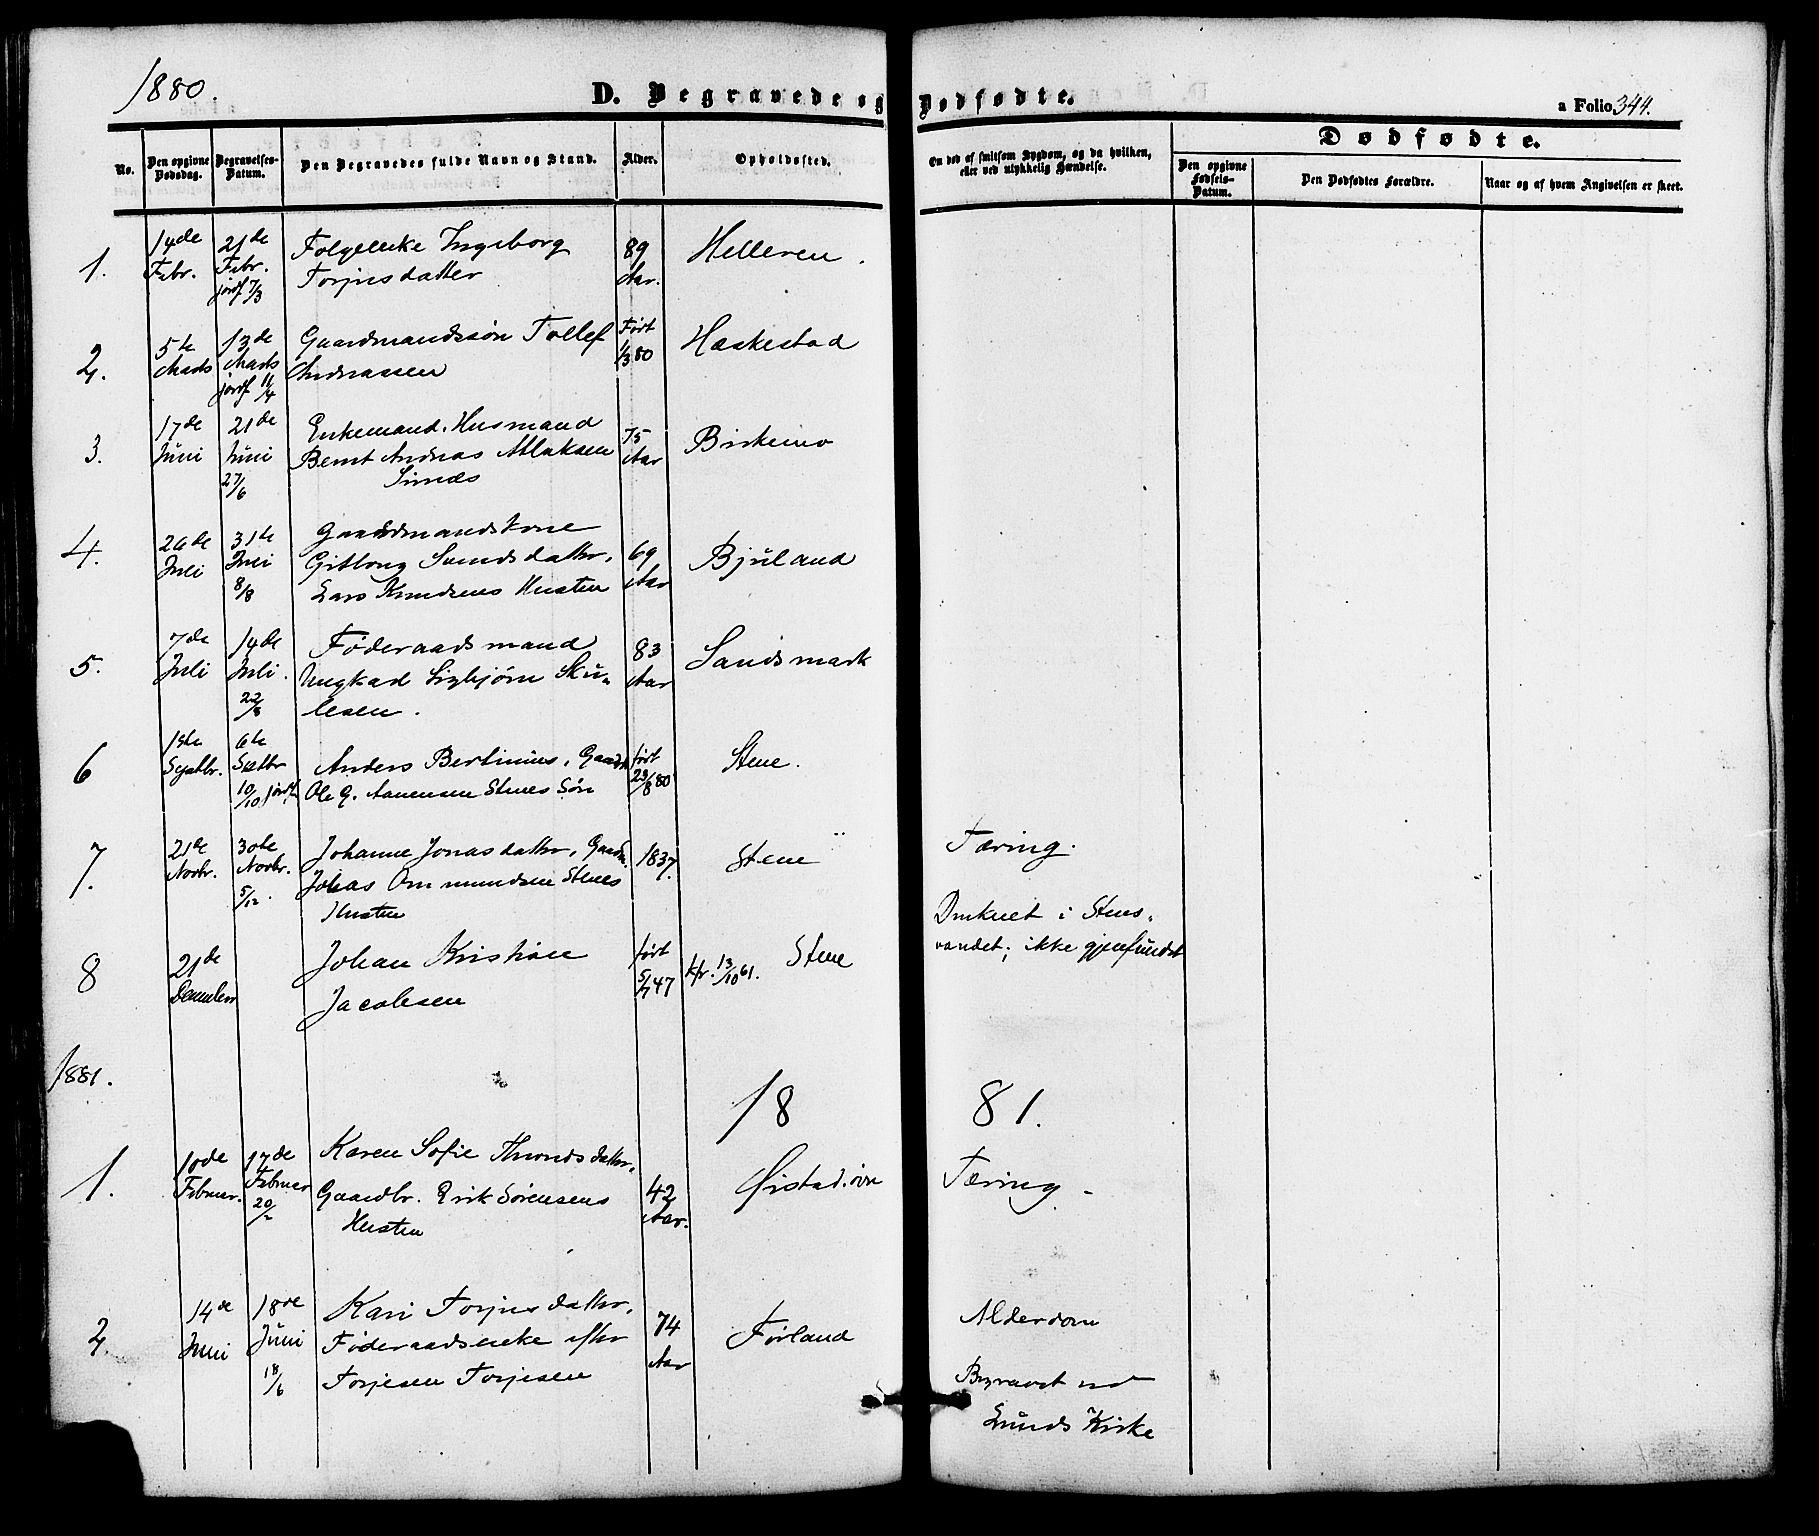 1880.
D. Begravede og Dødfødte.
a Folio 344.
No.
Den opgivne Dødsdag.
Begravelses-Datum.
Den Begravedes fulde Navn og Stand.
Alder.
Opholdssted.
En død af smitsom Sygdom, og da hvilken, eller ved ulykkelig Hændelse.
Dødfødte.
Den opgivne Fødsels-Datum.
Den Dødfødtes Forældre.
Naar og af hvem Angivelsen er skeet.
1.
14de Febr.
21de Febr. jordf 7/3
Ingeborg
Torjusdatter
89 Aar.
Helleren.
2.
5te Marts
13de Marts jordf 11/4
Gaardmandssøn Tollef
Andreassen
Født 1/3 80
Haskestad
3.
17de Juni
21de Juni 27/6
Enkemand. Husmand
Bernt Andreas Atlaksen
75 Aar
Birkemo
4.
26de Juli
31te Juli 8/8
Gaardmandskone
Gitlaug Svendsdattr.
Lars Knudsens Hustru
69 Aar
Bjuland
5.
7de Juli
14de Juli. 22/8
Føderaadsmand
Ungkarl Sigbjørn Sku-
lesen.
83 Aar
Sandsmark
6
1ste Septbr.
6te Septbr 10/10 jordf
Anders Bertinius, Gaardb
Ole G. Aanensen Stenes Søn
født 23/8 80
Stene.
7.
21de Novbr.
30te Novbr. 5/12.
Johanne Jonasdattr, Gaardm.
Johas Ommundsen Stenes
Hustru
1837.
Stene
Tæring.
8
21de December
Johan Kristian
Jacobsen
født 5/7 47
kfr. 13/10 61.
Stene
Druknet i Stens-
vandet; ikke gjenfundet
1881.
18 81.
1.
10de Februar.
17de Februar 20/2
Karen Sofie Thronsdattr,
Gaardbr. Erik Sørensens
Hustru
42 Aar.
Øistad.øvre
Tæring.
2.
14de Juni
18de Juni 18/6
Kari Torjusdattr,
Føderaadsenke eftr
Torjesen Torjesen
74 Aar
Førland
Alderdom
Begravet ved
Lunds Kirke